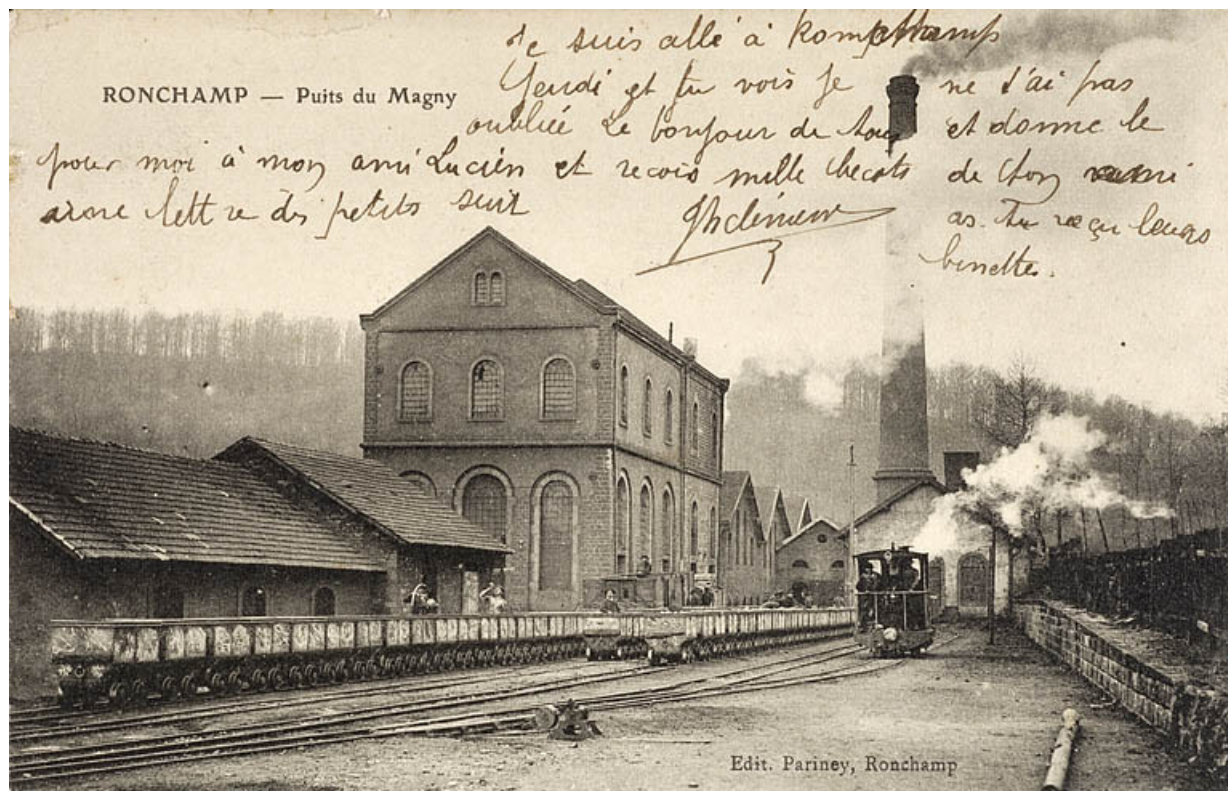 RONCHAMP — Puits du Magny
Je suis allé à
Jeudi et tu vois je ne t'ai pas
oubliée Le bonjour de tous et donne le
pour moi à mon ami Lucien et recois mille becots de ton ami
lettre des petits suit
as-tu reçu leurs
binettes.
Edit. Pariney, Ronchamp